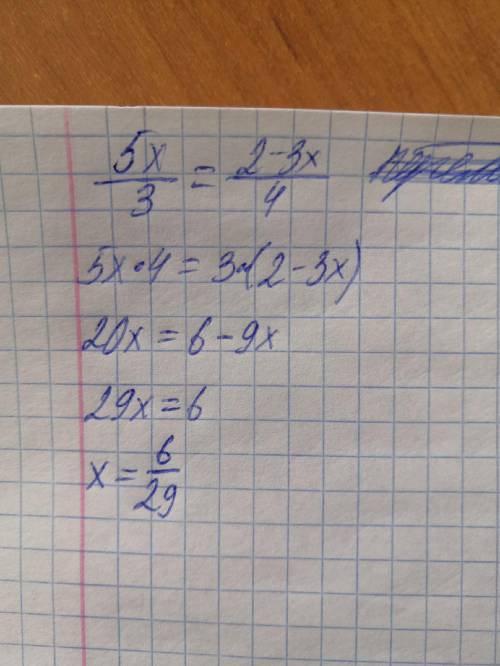 5x/3 = 2-3x/4
5x•4 = 3•(2-3x)
20x = 6-9x
29x = 6
x = 6/29